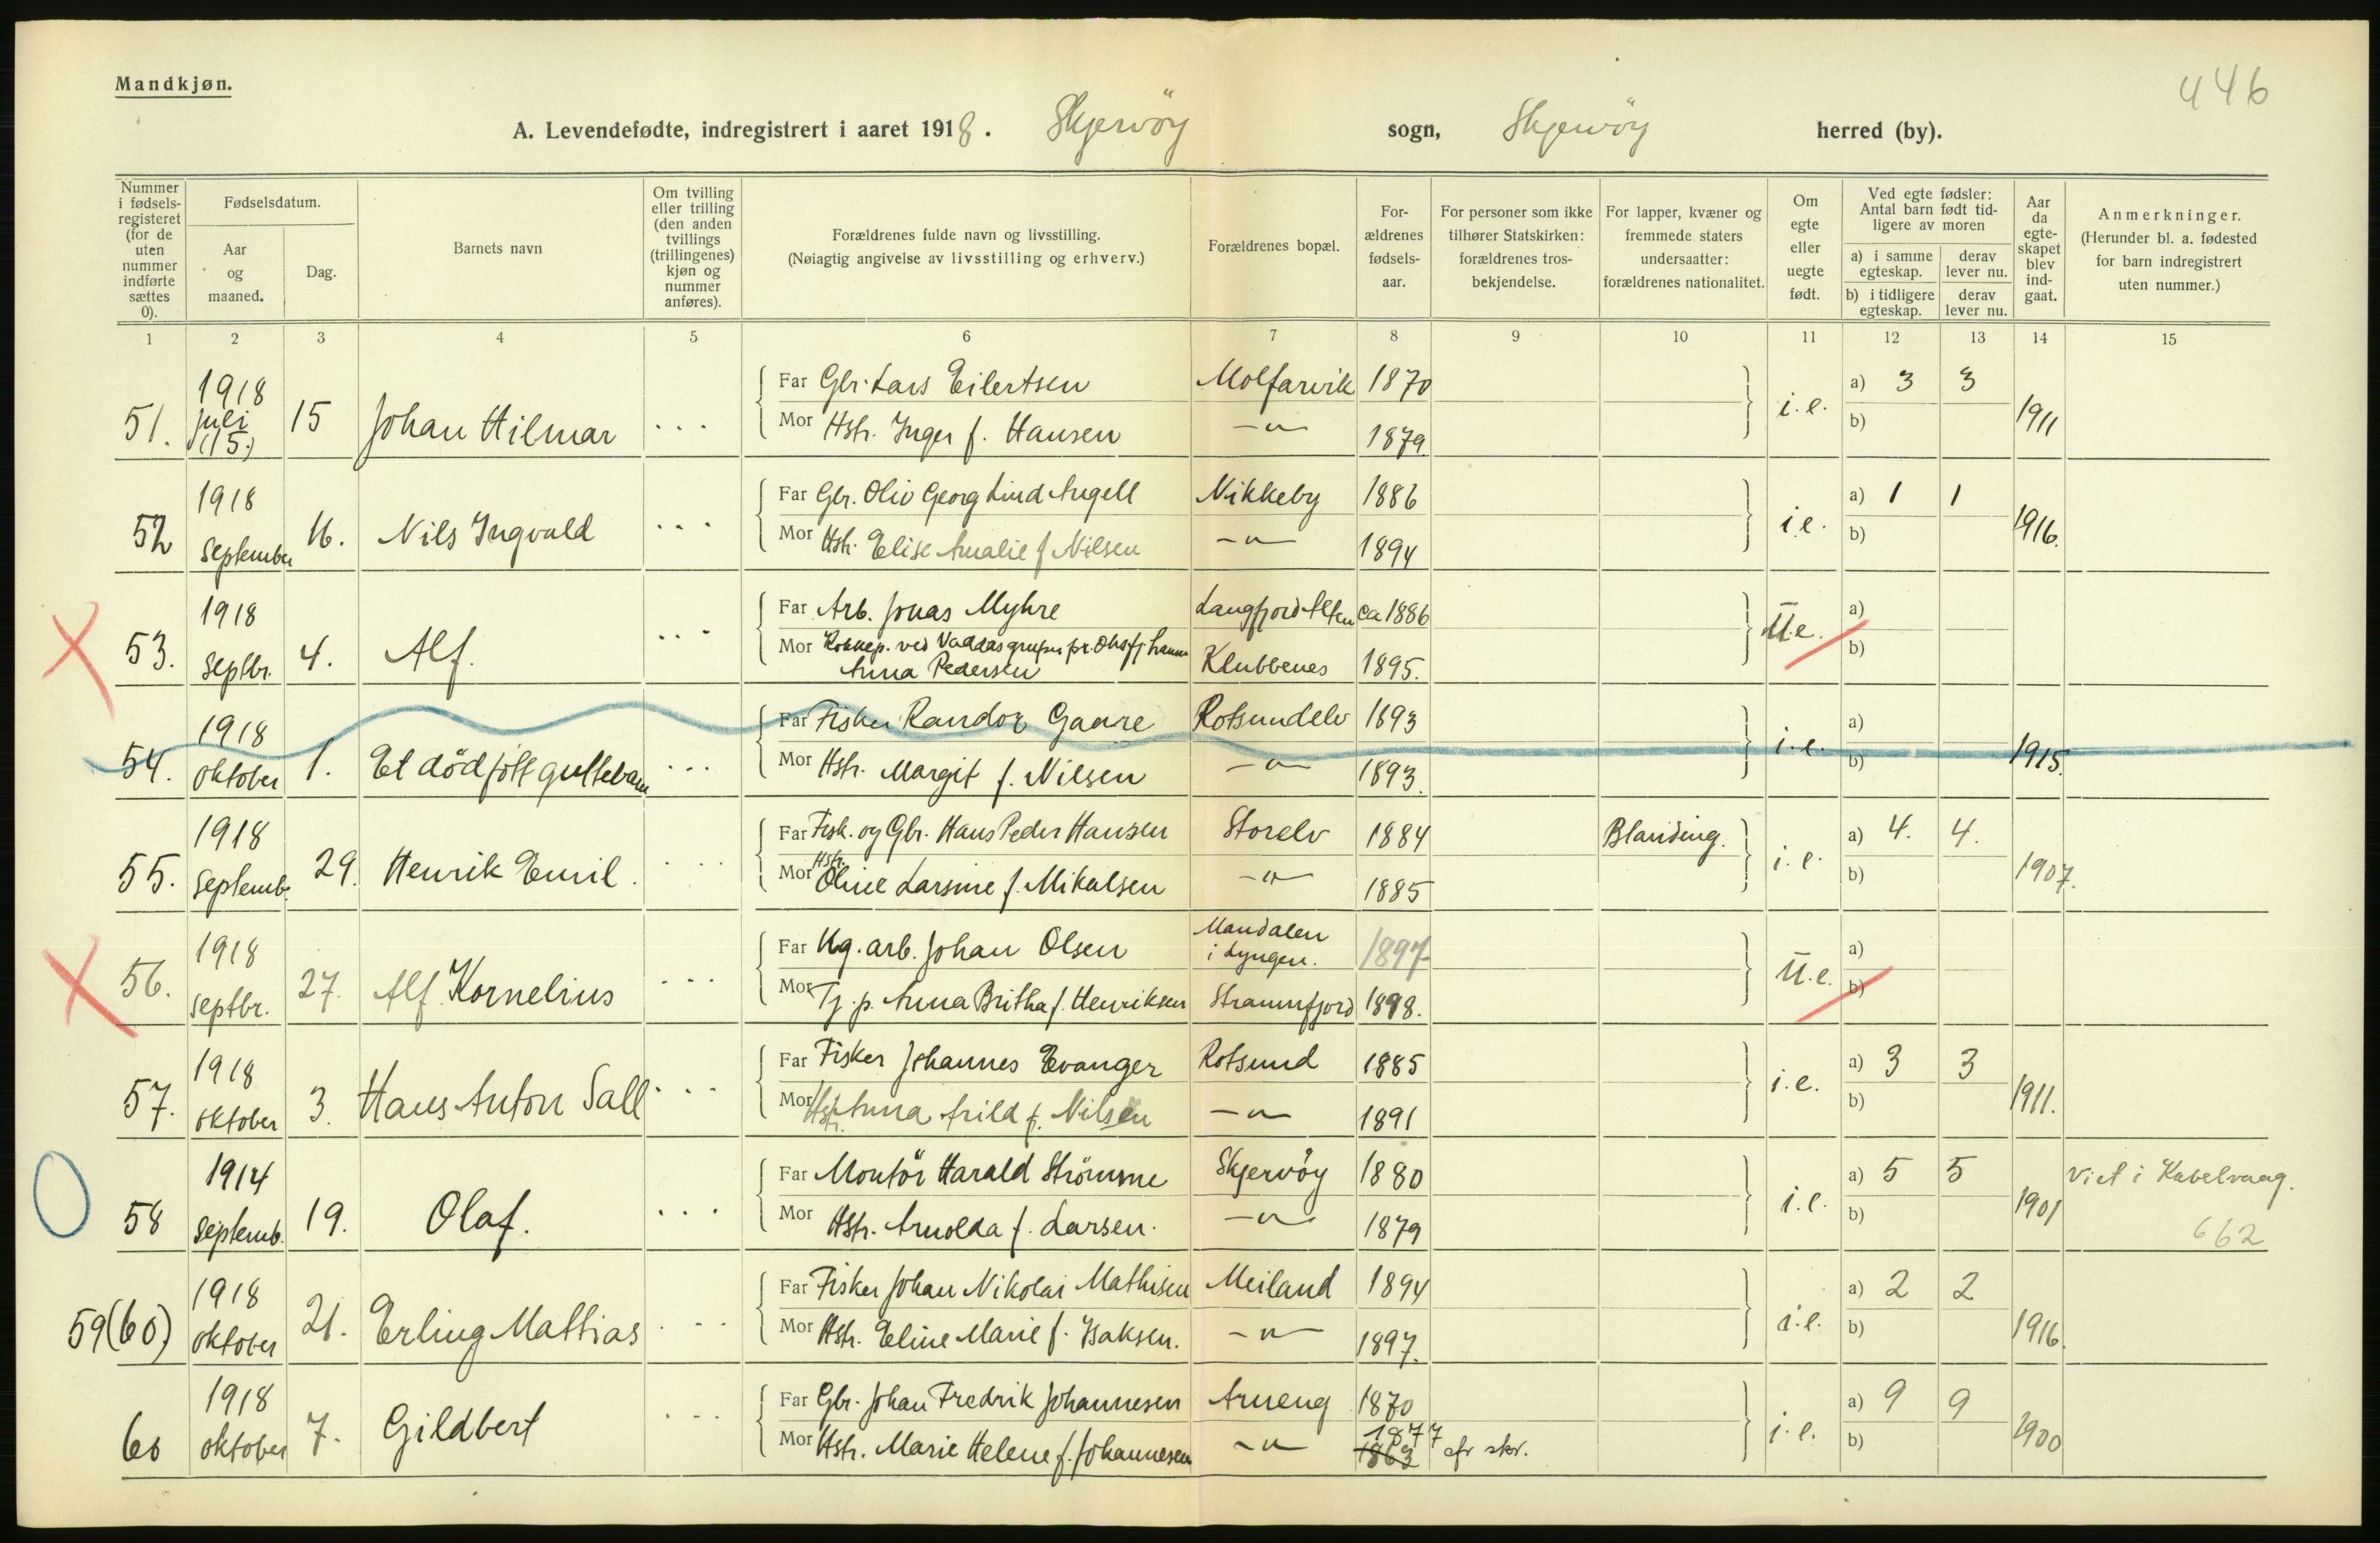 Mandkjøn.
446
A. Levendefødte, indregistrert i aaret 1918. Skjervöy sogn, Skjervöy herred (by).
Nummer i fødsels-registeret (for de uten nummer indførte sættes 0).
Fødselsdatum.
Aar og maaned.
Dag.
Barnets navn
Om tvilling eller trilling (den anden tvillings (trillingenes) kjøn og nummer anføres).
Forældrenes fulde navn og livsstilling.
(Nøiagtig angivelse av livsstilling og erhverv.)
Forældrenes bopæl.
For-ældrenes fødsels-aar.
For personer som ikke tilhører Statskirken: forældrenes tros-bekjendelse.
For lapper, kvæner og fremmede staters undersaatter: forældrenes nationalitet.
Om egte eller uegte født.
Ved egte fødsler: Antal barn født tid-ligere av moren
a) i samme egteskap.
derav lever nu.
b) i tidligere egteskap.
derav lever nu.
Aar da egte-skapet blev ind-gaat.
Anmerkninger.
(Herunder bl. a. fødested for barn indregistrert uten nummer.)
1 2 3 4 5 6 7 8 9 10 11 12 13 14 15
51. 1918 juli (15.) 15 Johan Hilmar . . .
Far Gbr. Lars Eilertsen Molfarvik 1870 i.e. a) 3 3 1911
Mor Hstr. Inger f. Hansen —"— 1879 b)
52 1918 September 16. Nils Ingvald . . .
Far Gbr. Oliv Georg Lind Angell Nikkeby 1886 i.e. a) 1 1 1916.
Mor Hstr. Elise Amalie f Nilsen —"— 1894 b)
53. 1918 Septbr. 4. Alf. . . .
Far Arb. Jonas Myhre Langfjord Alten ca 1886 U.e. a)
Mor Kokkep. ved Vaddasgruben pr. Oksfj. hamn Anna Pedersen Klubbenes 1895. b)
54. 1918 oktober 1. Et dödfött guttebarn . . .
Far Fisker Randor Gaare Rotsundelv 1893 i.e. a) 1915.
Mor Hstr. Margit f. Nilsen —"— 1893. b)
55. 1918 Septemb. 29. Henrik Emil. . . .
Far Fisk. og Gbr. Hans Peder Hansen Storelv 1884 Blanding. i.e. a) 4. 4. 1907.
Mor Hstr. Oline Larsine f. Mikalsen —"— 1885 b)
56. 1918 septbr. 27. Alf Kornelius . . .
Far Ug. arb. Johan Olsen Mandalen i Lyngen. 1897 U.e. a)
Mor Tj. p. Anna Britha f. Henriksen Straumfjord 1898. b)
57. 1918 oktober 3. Hans Anton Sall . . .
Far Fisker Johannes Evanger Rotsund 1885 i.e. a) 3 3 1911.
Mor Hstr. Anna Arild f. Nilsen —"— 1891 b)
58 1914 Septemb. 19. Olaf. . . .
Far Montör Harald Strömme Skjervöy 1880 i.e. a) 5 5 1901 Viet i Kabelvaag.
Mor Hstr. Arnolda f. Larsen. —"— 1879 b) 662
59(60) 1918 oktober 21. Erling Mattias . . .
Far Fisker Johan Nikolai Mathisen Meiland 1894 i.e. a) 2 2 1916.
Mor Hstr. Eline Marie f. Isaksen. —"— 1897. b)
60 1918 oktober 7. Gildbert . . .
Far Gbr. Johan Fredrik Johannesen Arneng 1870 i.e. a) 9 9 1900
Mor Hstr. Marie Helene f. Johannesen —"— 1877 1863 cfr skr. b)